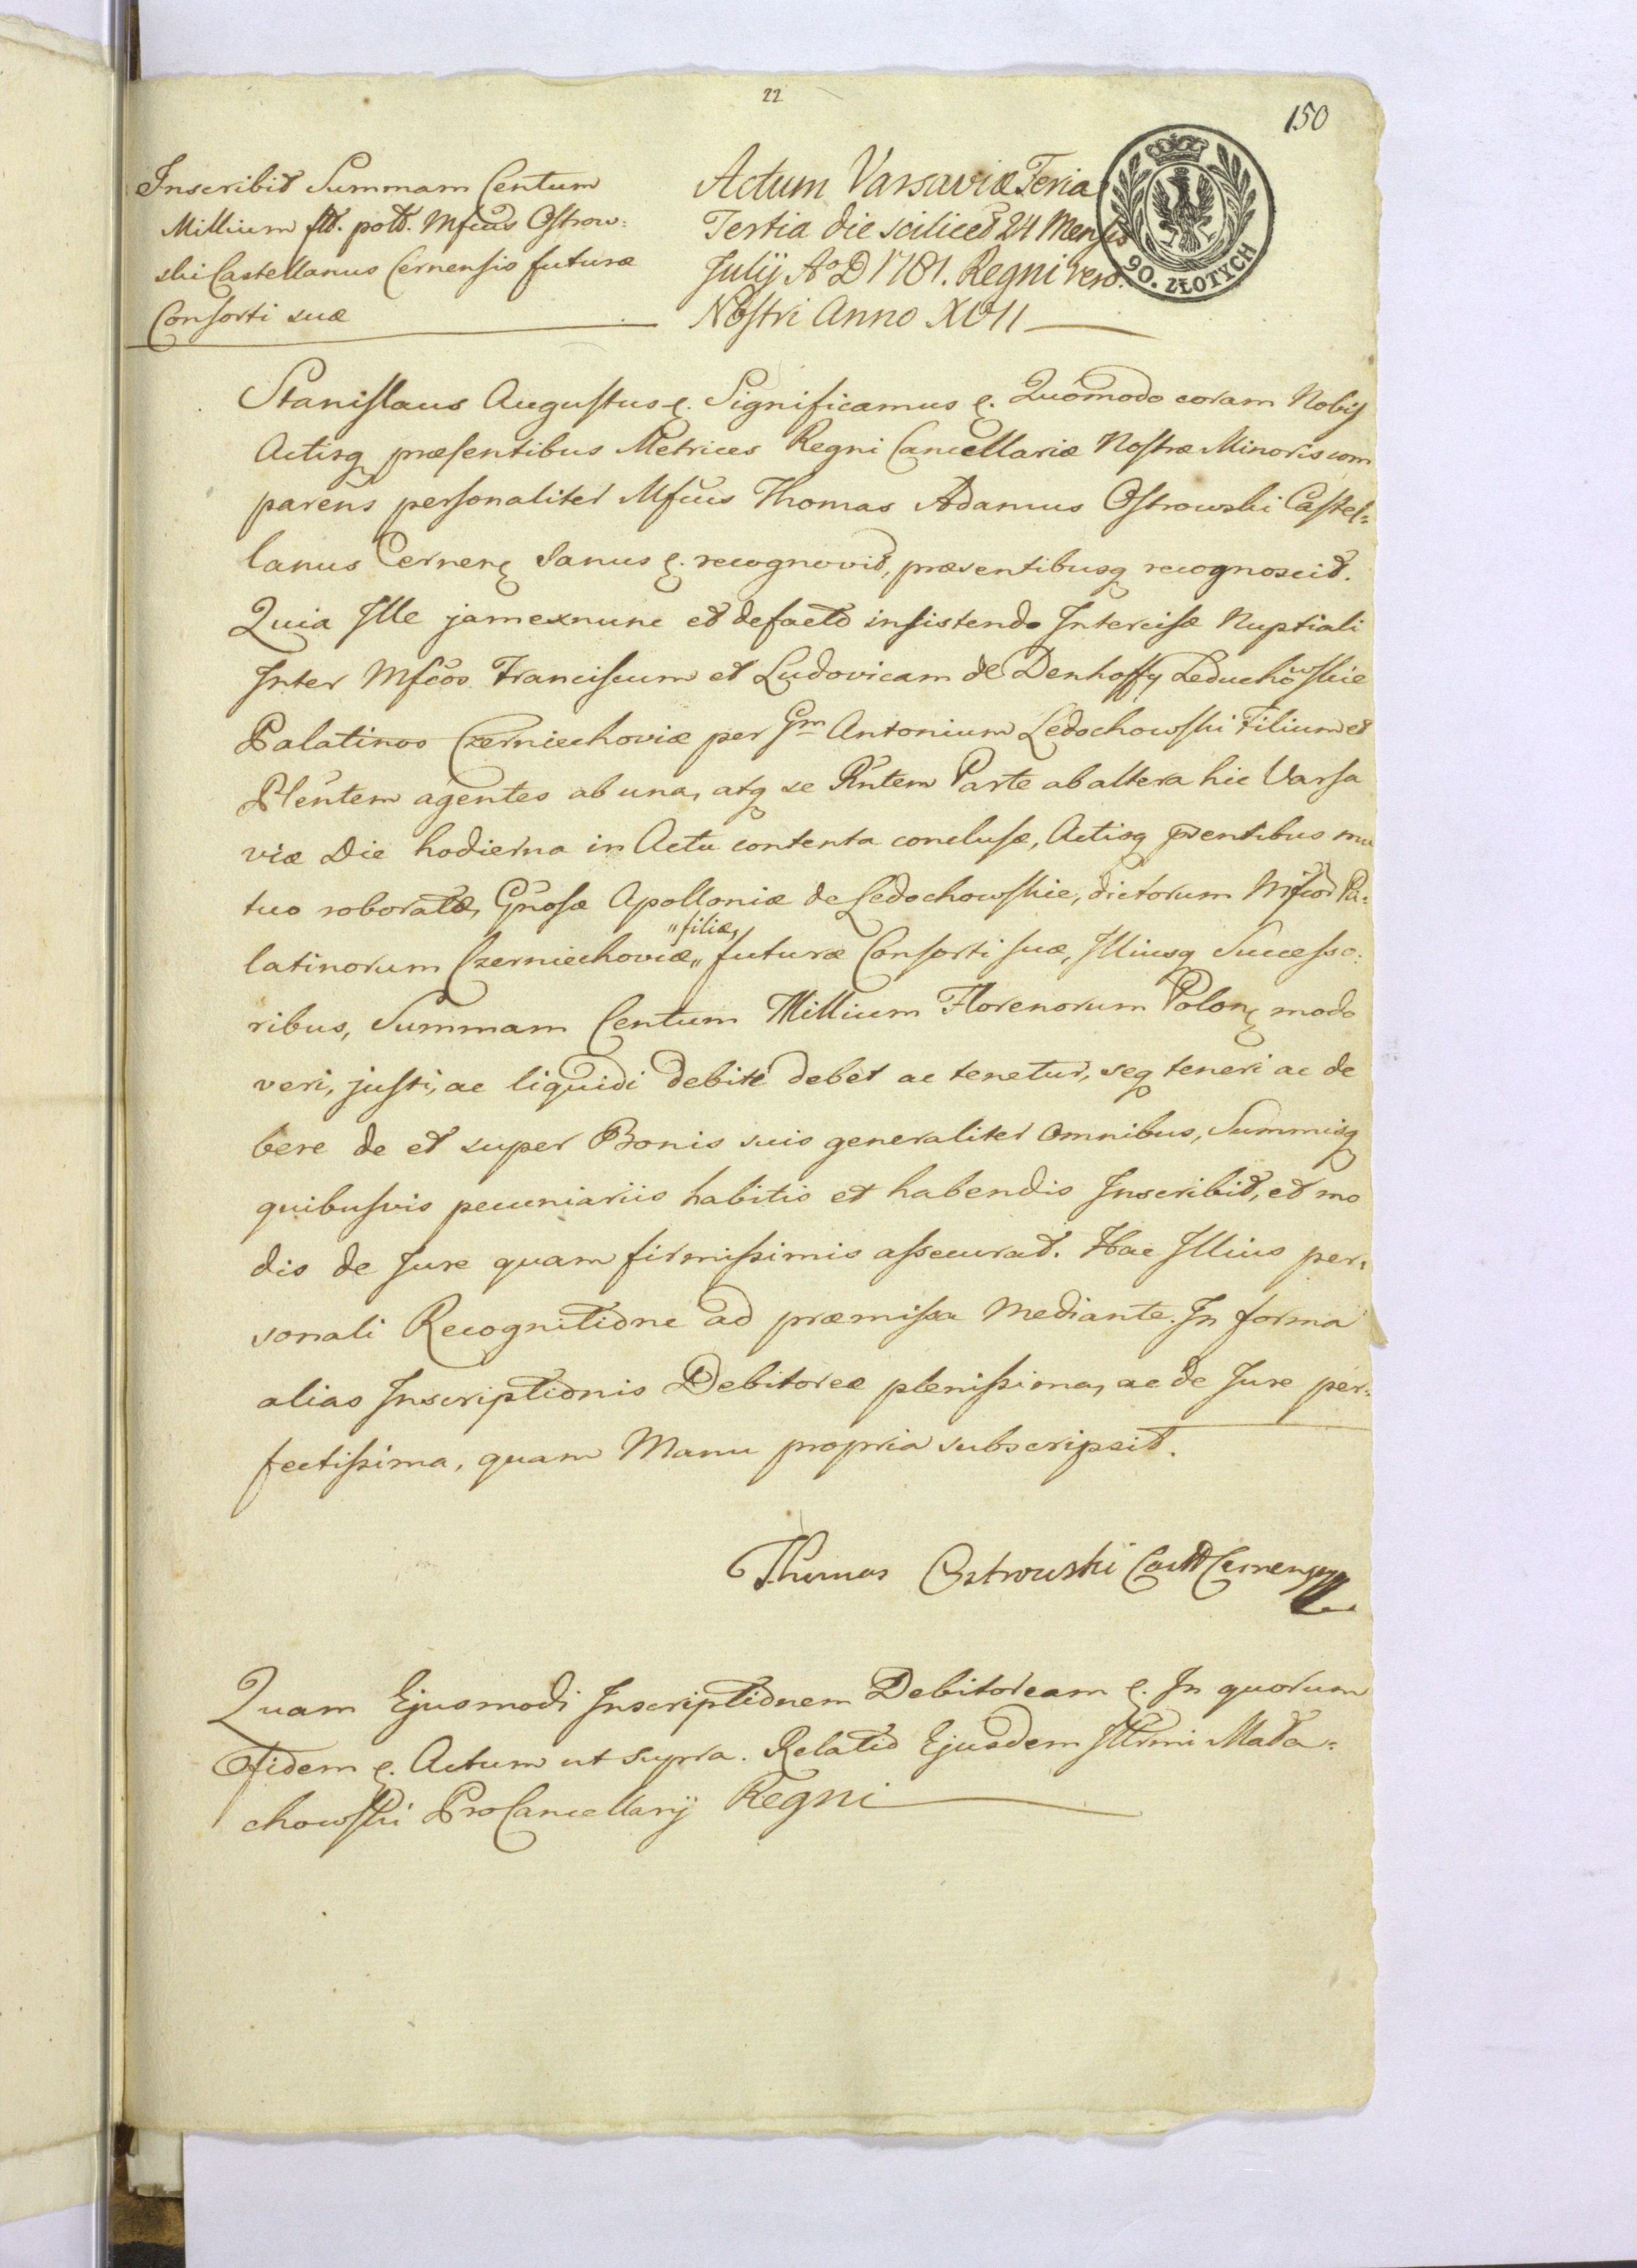 22
150
Inscribit Summam Centum
Millium flł. polł. Mfcus Ostrow:
ski Castellanus Cernensis futuræ
Consorti suæ
Actum Varsaviæ Feria
Tertia die scilicet 24 Mensis
Julij Ao D 1781. Regni vero.
Nostri Anno XVII
90. ZŁOTYCH
Stanislaus Augustus. Significamus. Quomodo coram Nobis
Actisq præsentibus Metrices Regni Cancellariæ Nostræ Minoris com
parens personaliter Mfcus Thomas Adamus Ostrowski Castel=
lanus Cernen Sanus. recognovit, præsentibusq recognoscit.
Quia Ille jam exnunc et defacto insistendo Intercisæ Nuptiali
Inter Mfcos Franciscum et Ludovicam de Denhoffy Leduchowskie
Palatinos Czerniechoviæ per Gm Antonium Ledochowski Filium et
Plentem agentes ab una, atq se Rntem Parte ab altera hic Varsa
viæ Die hodierna in Actu contenta conclusæ, Actisq pƷentibus mu
tuo roboratæ, Gnosæ Apolloniæ de Ledochowskie, dictorum Mfcor Pa=
"filiæ,
latinorum Czerniechoviæ" futuræ Consorti suæ, Illiusq Successo:
ribus, Summam Centum Millium Florenorum Polon modo
veri, justi, ac liquidi debiti debet ac tenetur, seq teneri ac de
bere de et super Bonis suis generaliter omnibus, Summisq
quibusvis pecuniariis habitis et habendis Inscribit, et mo
dis de Jure quam firmissimis assecurat. Hac Illius per=
sonali Recognitione ad præmissa Mediante. In forma
alias Inscriptionis Debitoreæ plenissima, ac de Jure per=
fectissima, quam Manu propria subscripsit.
Thomas Ostrowski Castł Cernensy
Quam Ejusmodi Inscriptionem Debitoream. In quorum
Fidem. Actum ut supra. Relatio Ejusdem Illrmi Mała=
chowski ProCancellarij Regni